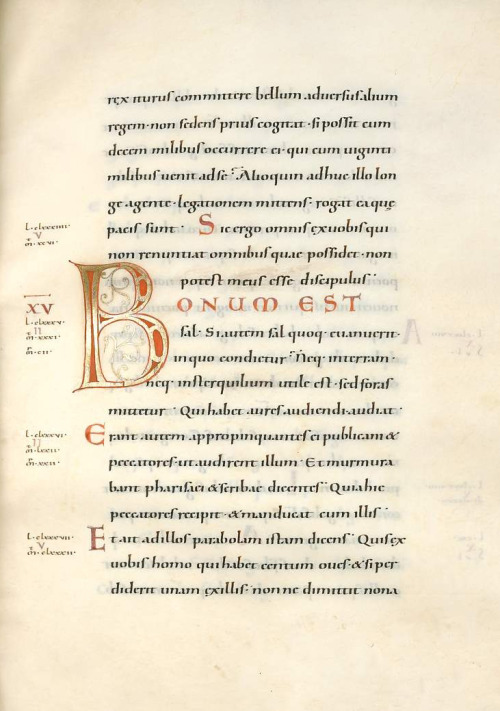 rex iturus committere bellum adversus alium
regem · non sedens prius cogitat · si possit cum
decem milibus occurrere ei · qui cum uiginti
milibus uenit ad se · Alioquin adhuc illo lon
ge agente · legationem mittens · rogat ea quę
pacis sunt · Sic ergo omnis ex uobis qui
non renuntiat omnibus quae possidet · non
potest meus esse discipulus ·
XV
BONUM EST
sal · Si autem sal quoq· euanuerit ·
in quo condietur · Neq· in terram ·
neq· in sterquilium utile est · sed foras
mittetur · Qui habet aures audiendi audiat ·
Erant autem appropinquantes ei publicani &
peccatores · ut audirent illum · Et murmura
bant pharisaei & scribae dicentes · Quia hic
peccatores recipit · & manducat cum illis ·
Et ait ad illos parabolam istam dicens · Quis ex
uobis homo qui habet centum oues · & si per
diderit unam ex illis · nonne dimittit nona